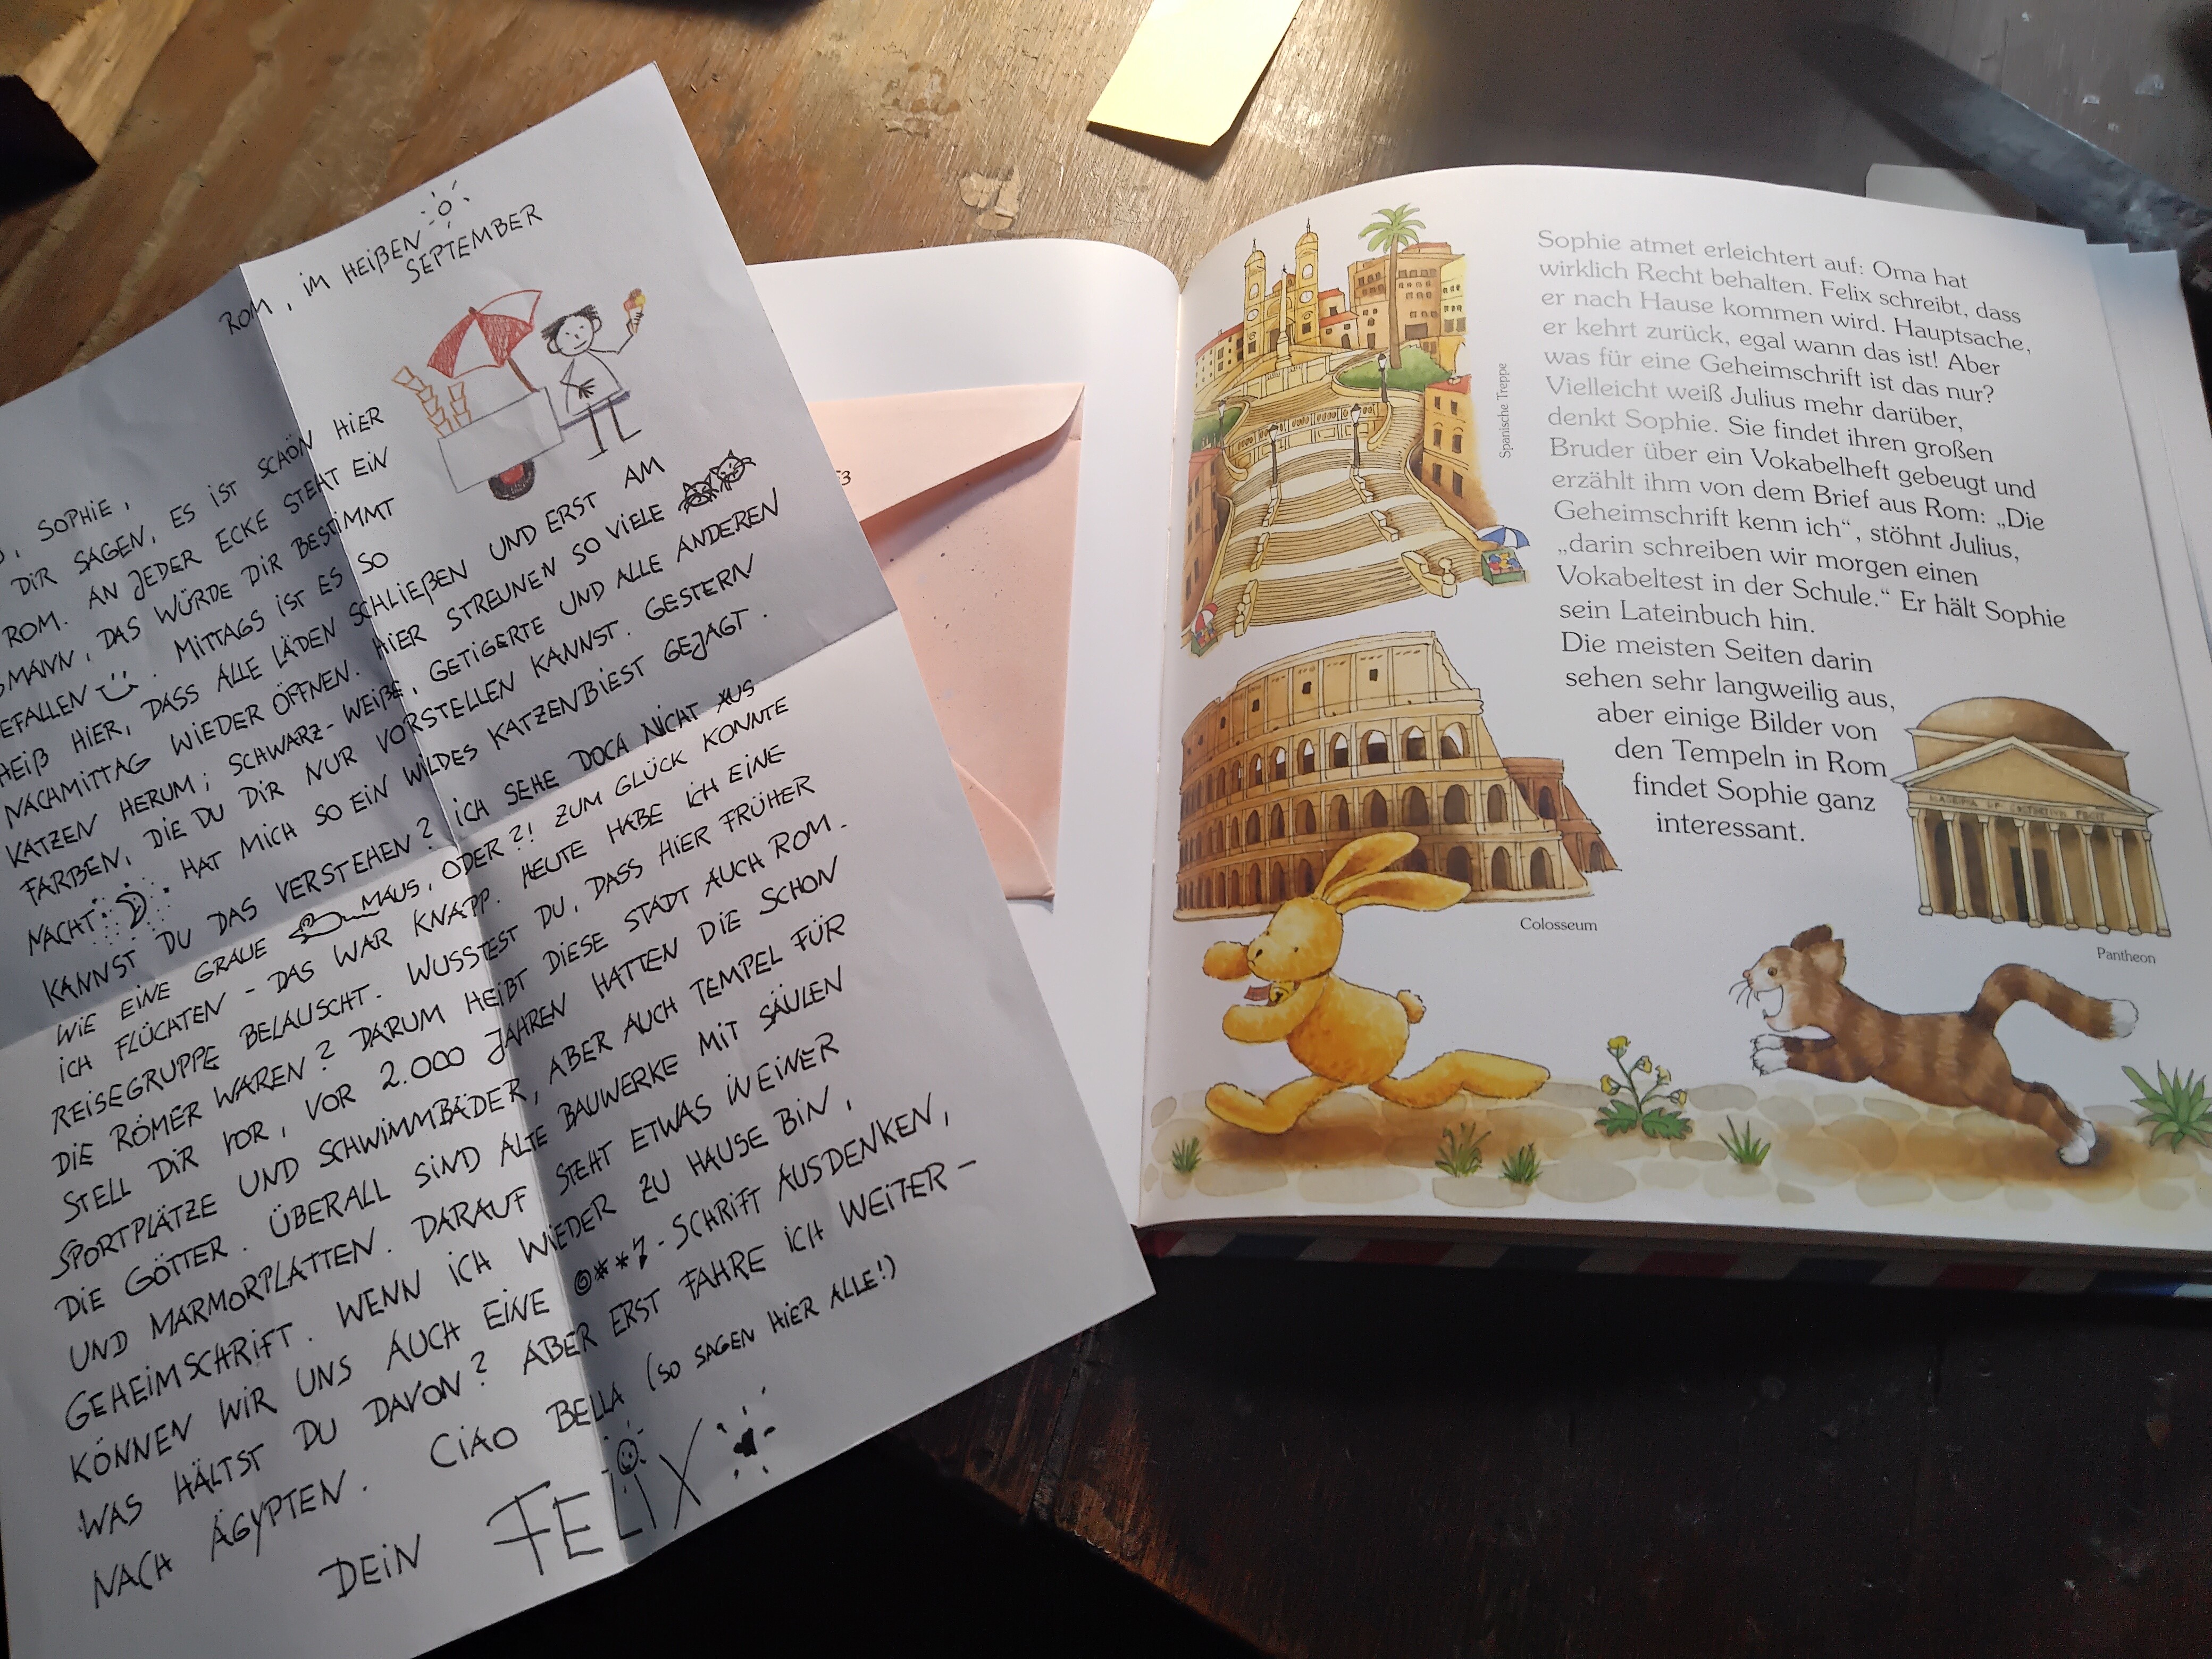 ROM, IM HEIßEN
SEPTEMBER
, SOPHIE,
DIR SAGEN, ES IST SCHÖN HIER
ROM. AN JEDER ECKE STEHT EIN
SMANN, DAS WÜRDE DIR BESTIMMT
EFALLEN. MITTAGS IST ES SO
HEIß HIER, DASS ALLE LÄDEN SCHLIEßEN UND ERST AM
NACHMITTAG WIEDER ÖFFNEN. HIER STREUNEN SO VIELE
KATZEN HERUM; SCHWARZ-WEIßE, GETIGERTE UND ALLE ANDEREN
FARBEN, DIE DU DIR NUR VORSTELLEN KANNST. GESTERN
NACHT HAT MICH SO EIN WILDES KATZENBIEST GEJAGT.
KANNST DU DAS VERSTEHEN? ICH SEHE DOCH NICHT AUS
WIE EINE GRAUE MAUS, ODER?! ZUM GLÜCK KONNTE
ICH FLÜCHTEN - DAS WAR KNAPP. HEUTE HABE ICH EINE
REISEGRUPPE BELAUSCHT. WUSSTEST DU, DASS HIER FRÜHER
DIE RÖMER WAREN? DARUM HEIßT DIESE STADT AUCH ROM.
STELL DIR VOR, VOR 2.000 JAHREN HATTEN DIE SCHON
SPORTPLÄTZE UND SCHWIMMBÄDER, ABER AUCH TEMPEL FÜR
DIE GÖTTER. ÜBERALL SIND ALTE BAUWERKE MIT SÄULEN
UND MARMORPLATTEN. DARAUF STEHT ETWAS IN EINER
GEHEIMSCHRIFT. WENN ICH WIEDER ZU HAUSE BIN,
KÖNNEN WIR UNS AUCH EINE -SCHRIFT AUSDENKEN,
WAS HÄLTST DU DAVON? ABER ERST FAHRE ICH WEITER -
NACH ÄGYPTEN. CIAO BELLA (SO SAGEN HIER ALLE!)
DEIN FELIX
Spanische Treppe
Sophie atmet erleichtert auf: Oma hat
wirklich Recht behalten. Felix schreibt, dass
er nach Hause kommen wird. Hauptsache,
er kehrt zurück, egal wann das ist! Aber
was für eine Geheimschrift ist das nur?
Vielleicht weiß Julius mehr darüber,
denkt Sophie. Sie findet ihren großen
Bruder über ein Vokabelheft gebeugt und
erzählt ihm von dem Brief aus Rom: „Die
Geheimschrift kenn ich“, stöhnt Julius,
„darin schreiben wir morgen einen
Vokabeltest in der Schule.“ Er hält Sophie
sein Lateinbuch hin.
Die meisten Seiten darin
sehen sehr langweilig aus,
aber einige Bilder von
den Tempeln in Rom
findet Sophie ganz
interessant.
Colosseum
Pantheon